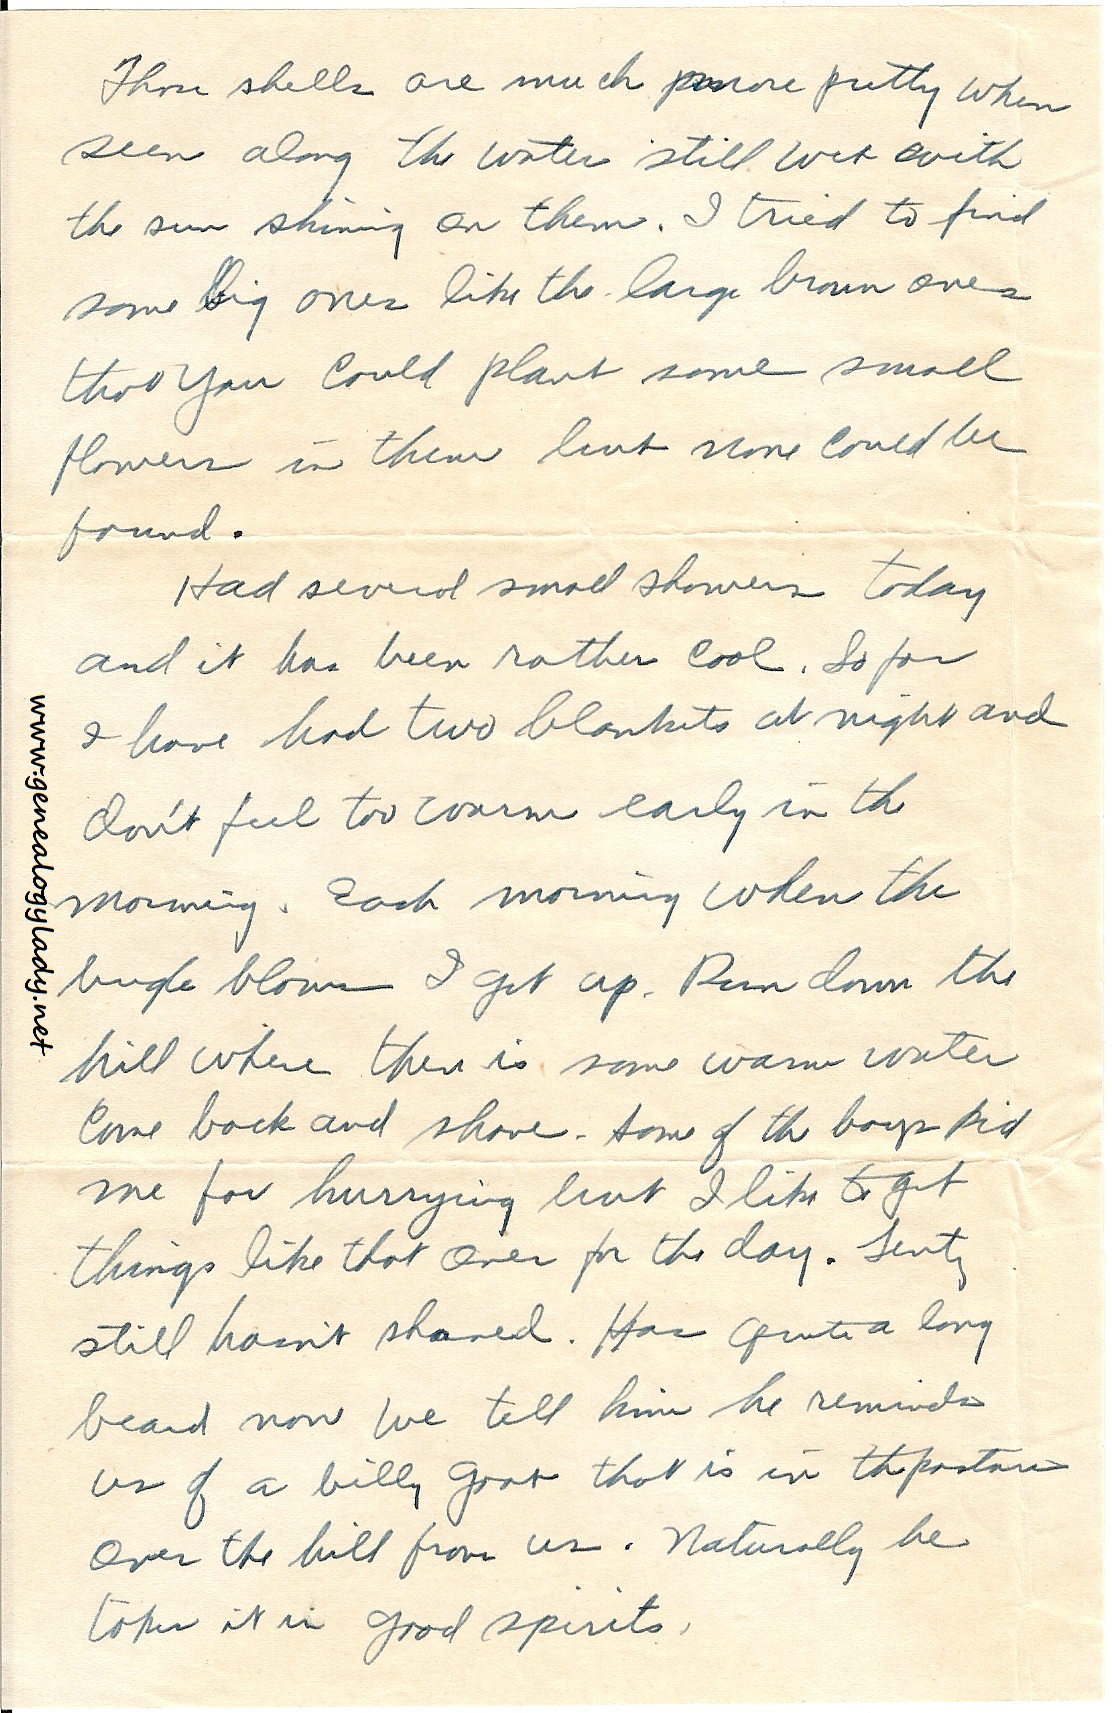 Those shells are much more pretty when
seen along the water still wet with
the sun shining on them. I tried to find
some big ones like the large brown ones
that you could plant some small
flowers in them but none could be
found.
Had several small showers today
and it has been rather cool. So far
I have had two blankets at night and
don't feel too warm early in the
morning. Each morning when the
bugle blows I get up. Run down the
hill where there is some warm water
Come back and shave. Some of the boys kid
me for hurrying but I like to get
things like that over for the day.
still hasn't shaved. Has quite a long
beard now we tell him he reminds
us of a billy goat that is in the pasture
over the hill from us. Naturally he
takes it in good spirits.
www.genealogylady.net